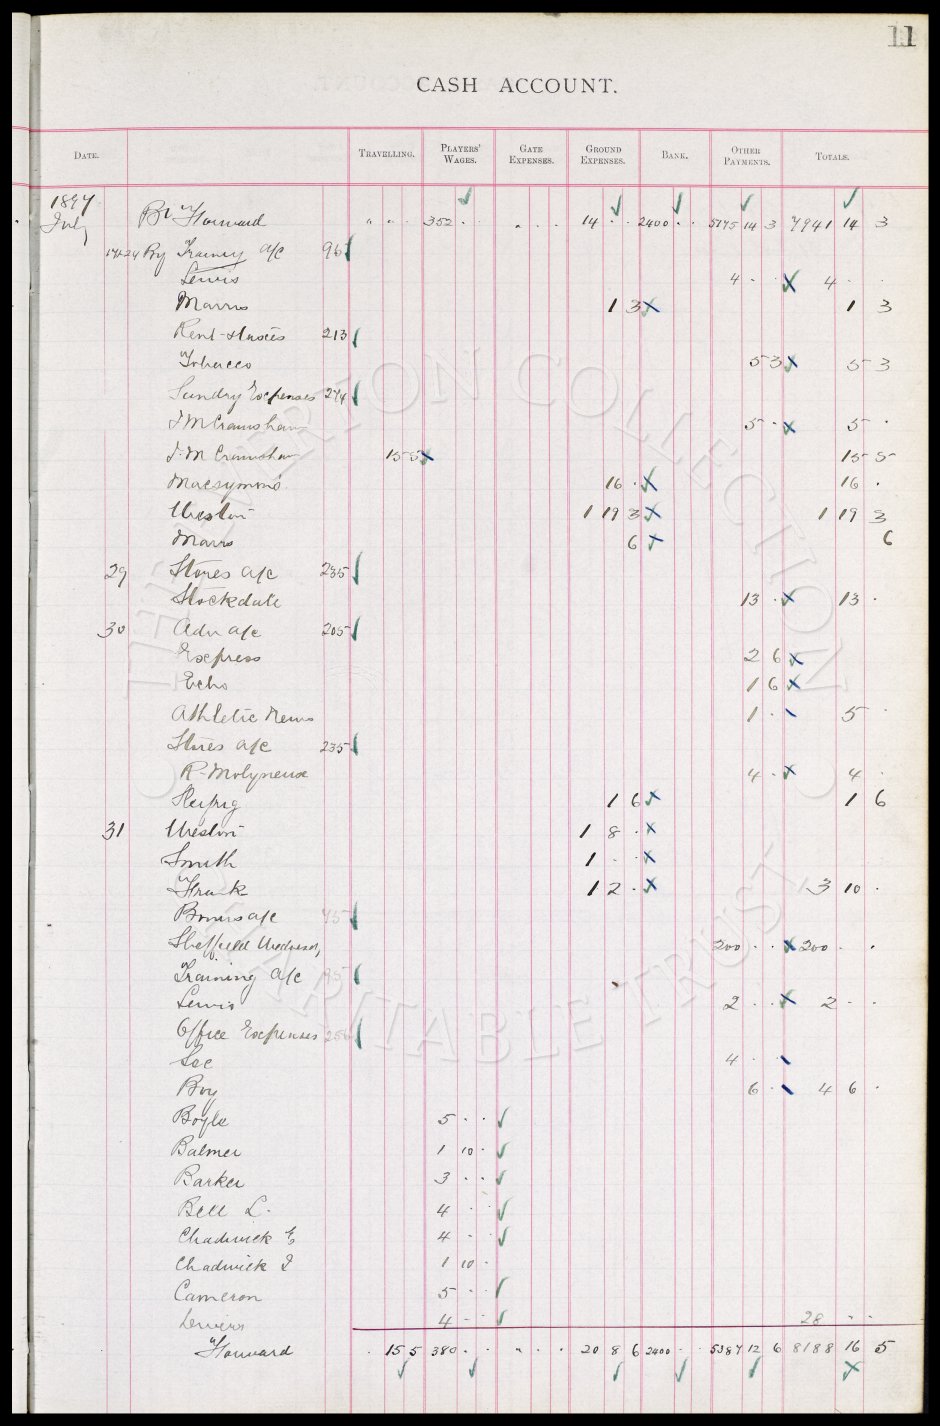 11
CASH ACCOUNT.
DATE. TRAVELLING. PLAYERS' WAGES. GATE EXPENSES. GROUND EXPENSES. BANK. OTHER PAYMENTS. TOTALS.
1897
July Bt Forward " " · 352 · · " · · 14 · · 2400 · · 5175 14 3 7941 14 3
By Trainery a/c 95
Lewis 4 · · 4 ·
Marrs 1 3 1 3
Rent & taxes 213
Tobacco 5 3 5 3
Sundry Expenses 274
J M Cranshaw 5 · 5 ·
J. M Cranshaw 15 5 15 5
Macsymons 16 · 16 ·
Weston 1 19 3 1 19 3
Marrs 6 6
29 Stores a/c 235
Stockdale 13 · 13 ·
30 Adv a/c 205
Express 2 6
Echo 1 6
Athletic News 1 · 5 ·
Stores a/c 235
R. Molyneux 4 · 4 ·
1 6 1 6
31 Weston 1 8 ·
Smith 1 · ·
Frank 1 2 · 3 10 ·
Bonus a/c
Sheffield Wednesdy 200 · · 200 · ·
Training a/c 95
Lewis 2 · · 2 · ·
Office Expenses 256
Sec 4 · ·
Boy 6 · 4 6 ·
Boyle 5 · ·
Balmer 1 10 ·
Barker 3 · ·
Bell L. 4 · ·
Chadwick E 4 · ·
Chadwick T 1 10 ·
Cameron 5 · ·
4 · · 28 · ·
Forward · 15 5 380 · · " · · 20 8 6 2400 · · 5387 12 6 8188 16 5
THE EVERTON COLLECTION
CHARITABLE TRUST